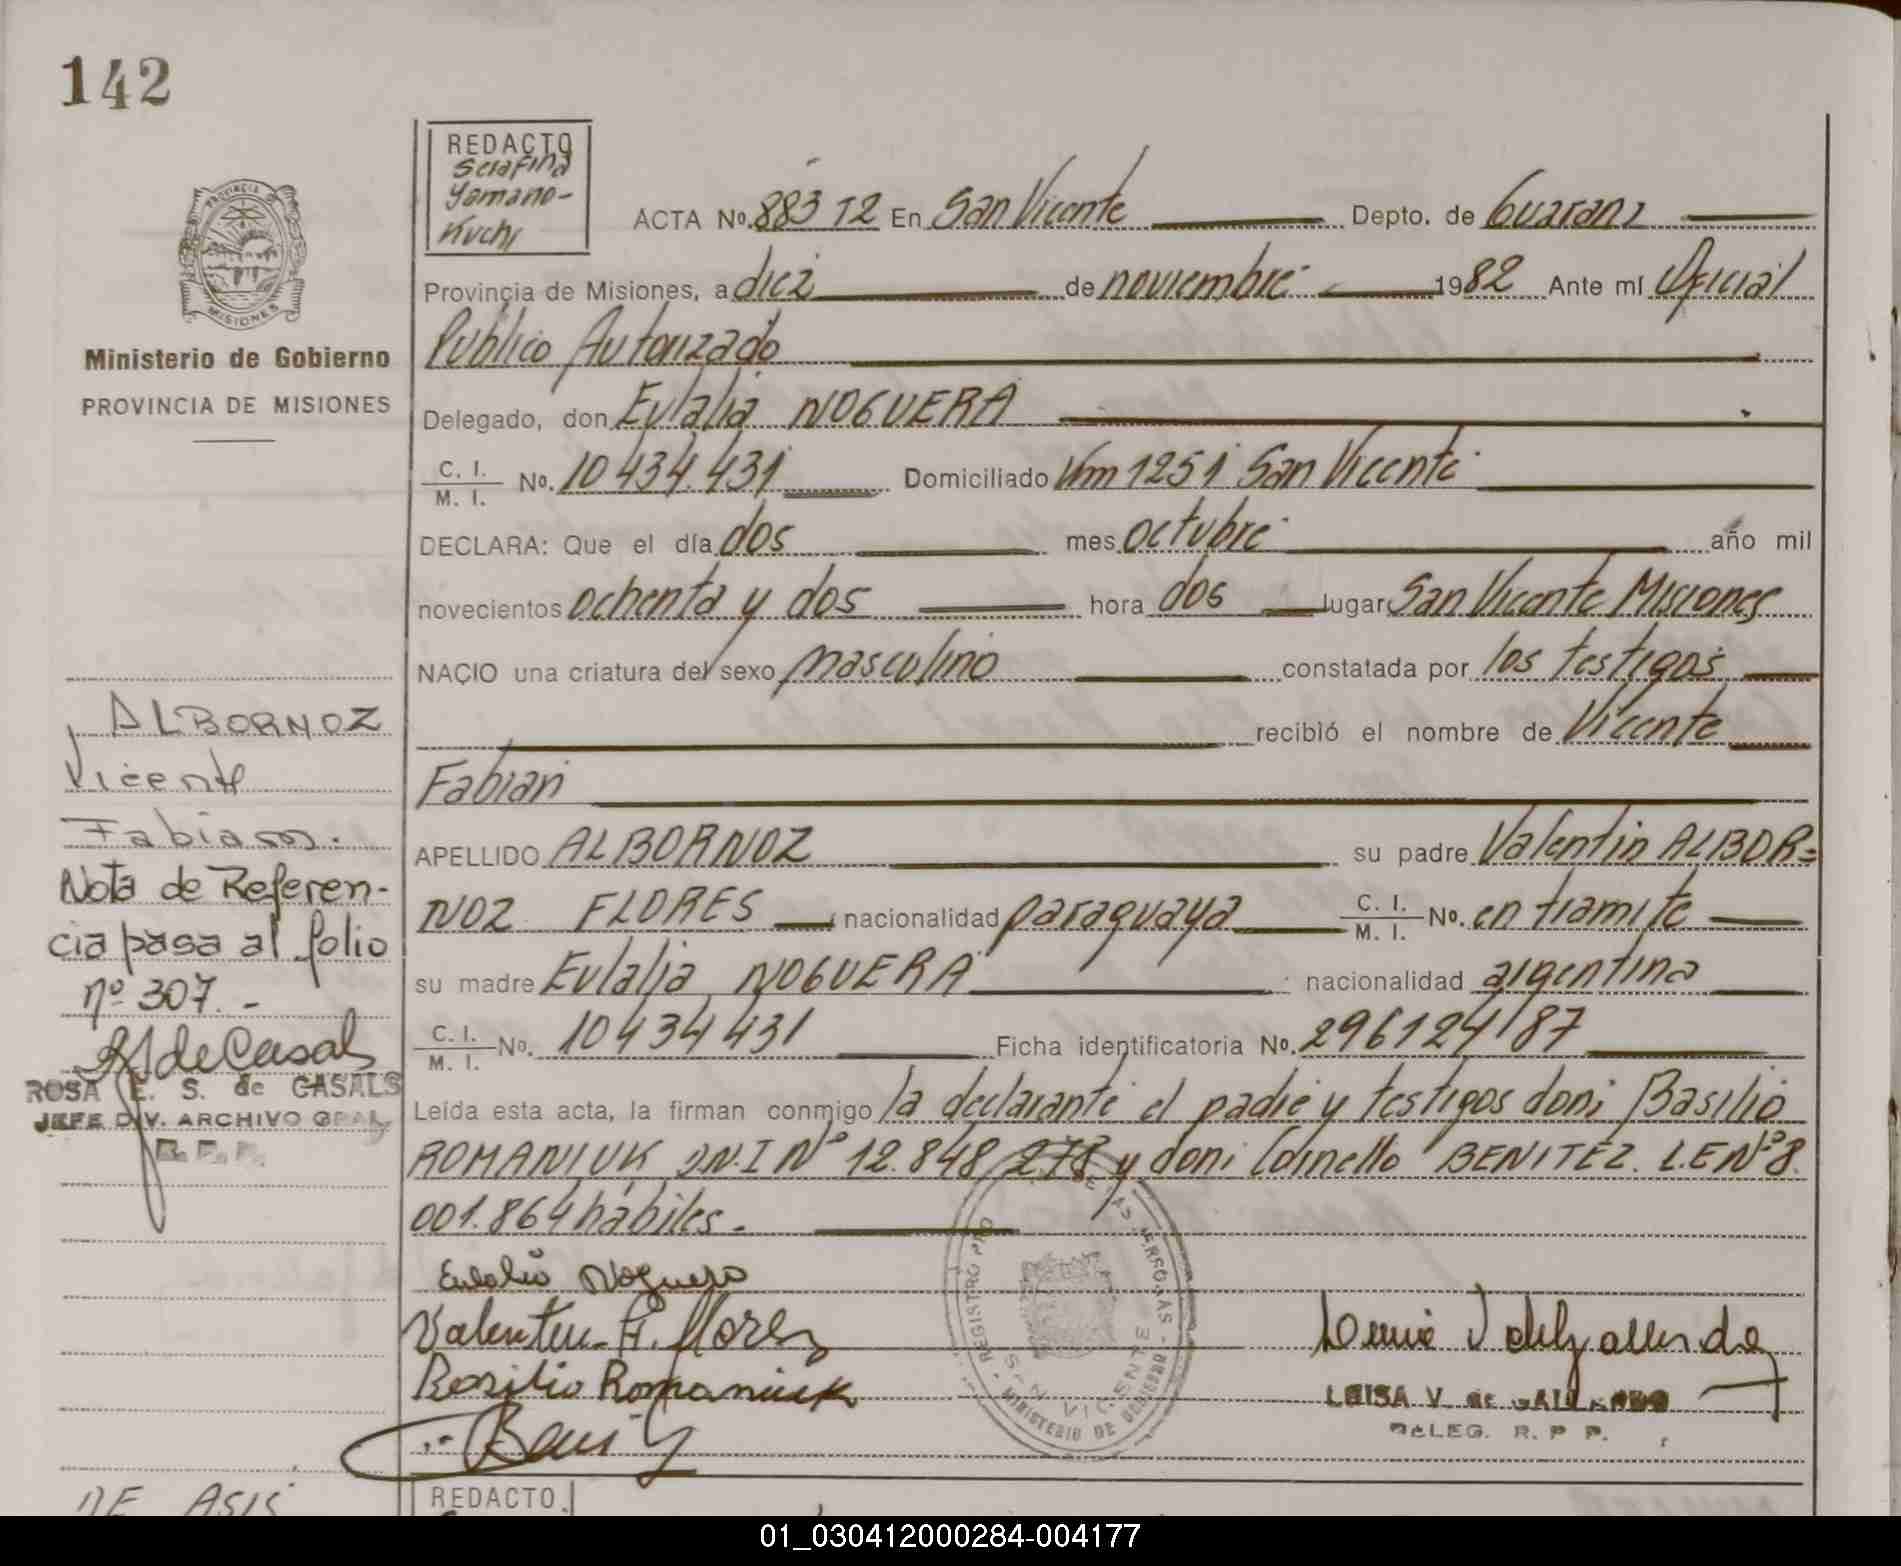 142
REDACTO
Serafina
Yamano-
Kuchi
ACTA No. 883 T2 En San Vicente Depto. de Guarani
PROVINCIA
MISIONES
Ministerio de Gobierno
PROVINCIA DE MISIONES
Provincia de Misiones, a diez de noviembre 1982 Ante mí Oficial
Público Autorizado
Delegado, don Eulalia NOGUERA
C. I.
M. I. No. 10 434.431 Domiciliado Km 1251 San Vicente
DECLARA: Que el día dos mes octubre año mil
novecientos ochenta y dos hora dos lugar San Vicente Misiones
NACIO una criatura del sexo masculino constatada por los testigos
recibió el nombre de Vicente
Fabian
APELLIDO ALBORNOZ su padre Valentin ALBOR=
NOZ FLORES nacionalidad paraguaya C. I. M. I. No. en tramite
su madre Eulalia NOGUERA nacionalidad argentina
C. I.
M. I. No. 10 434 431 Ficha identificatoria No. 296124/87
Leída esta acta, la firman conmigo la declarante el padre y testigos don: Basilio
ROMANIUK DN.I Nº 12.848 278 y don: Cornelio BENITEZ. L.E Nº 8.
001.864 hábiles.-
ALBORNOZ
Vicente
Fabian.
Nota de Referen-
cia pasa al folio
nº 307.-
ROSA E. S. de CASALS
JEFE DIV. ARCHIVO GRAL
R. P. P.
Eulalia Noguera
Valentin A. Flores
Basilio Romaniuk
REGISTRO PCIAL DE LAS PERSONAS
SAN VICENTE
MINISTERIO DE GOBIERNO
LUISA V. de GALLARDO
DELEG. R. P P.
DE ASIS
REDACTO
01_030412000284-004177